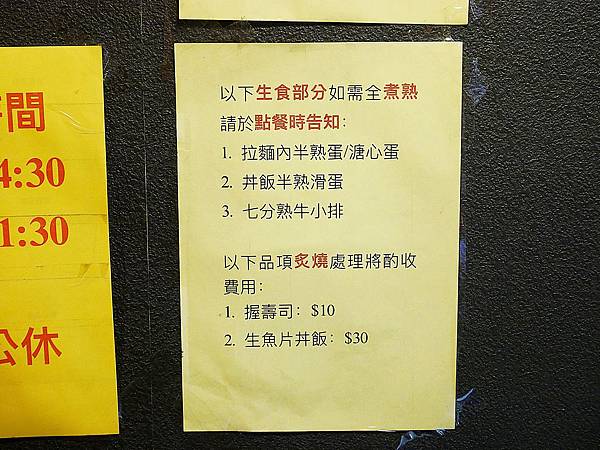 間
4:30
1:30
公休
以下生食部分如需全煮熟
請於點餐時告知:
1. 拉麵內半熟蛋/溏心蛋
2. 丼飯半熟滑蛋
3. 七分熟牛小排
以下品項炙燒處理將酌收
費用:
1. 握壽司: $10
2. 生魚片丼飯: $30